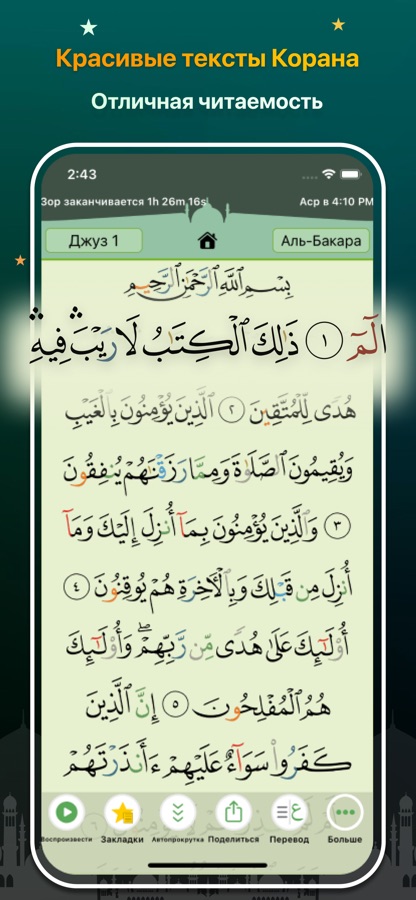 Красивые тексты Корана
Отличная читаемость
2:43
Зор заканчивается 1h 26m 16s
Аср в 4:10 PM
Джуз 1
Аль-Бакара
بِسْمِ ٱللَّهِ ٱلرَّحْمَٰنِ ٱلرَّحِيمِ
الٓمٓ ١ ذَٰلِكَ ٱلْكِتَٰبُ لَا رَيْبَ ۛ فِيهِ ۛ
هُدًى لِّلْمُتَّقِينَ ٢ ٱلَّذِينَ يُؤْمِنُونَ بِٱلْغَيْبِ
وَيُقِيمُونَ ٱلصَّلَوٰةَ وَمِمَّا رَزَقْنَٰهُمْ يُنفِقُونَ
٣ وَٱلَّذِينَ يُؤْمِنُونَ بِمَآ أُنزِلَ إِلَيْكَ وَمَآ
أُنزِلَ مِن قَبْلِكَ وَبِٱلْءَاخِرَةِ هُمْ يُوقِنُونَ ٤
أُو۟لَٰٓئِكَ عَلَىٰ هُدًى مِّن رَّبِّهِمْ ۖ وَأُو۟لَٰٓئِكَ
هُمُ ٱلْمُفْلِحُونَ ٥ إِنَّ ٱلَّذِينَ
كَفَرُوا۟ سَوَآءٌ عَلَيْهِمْ ءَأَنذَرْتَهُمْ
Воспроизвести
Закладки
Автопрокрутка
Поделиться
Перевод
Больше